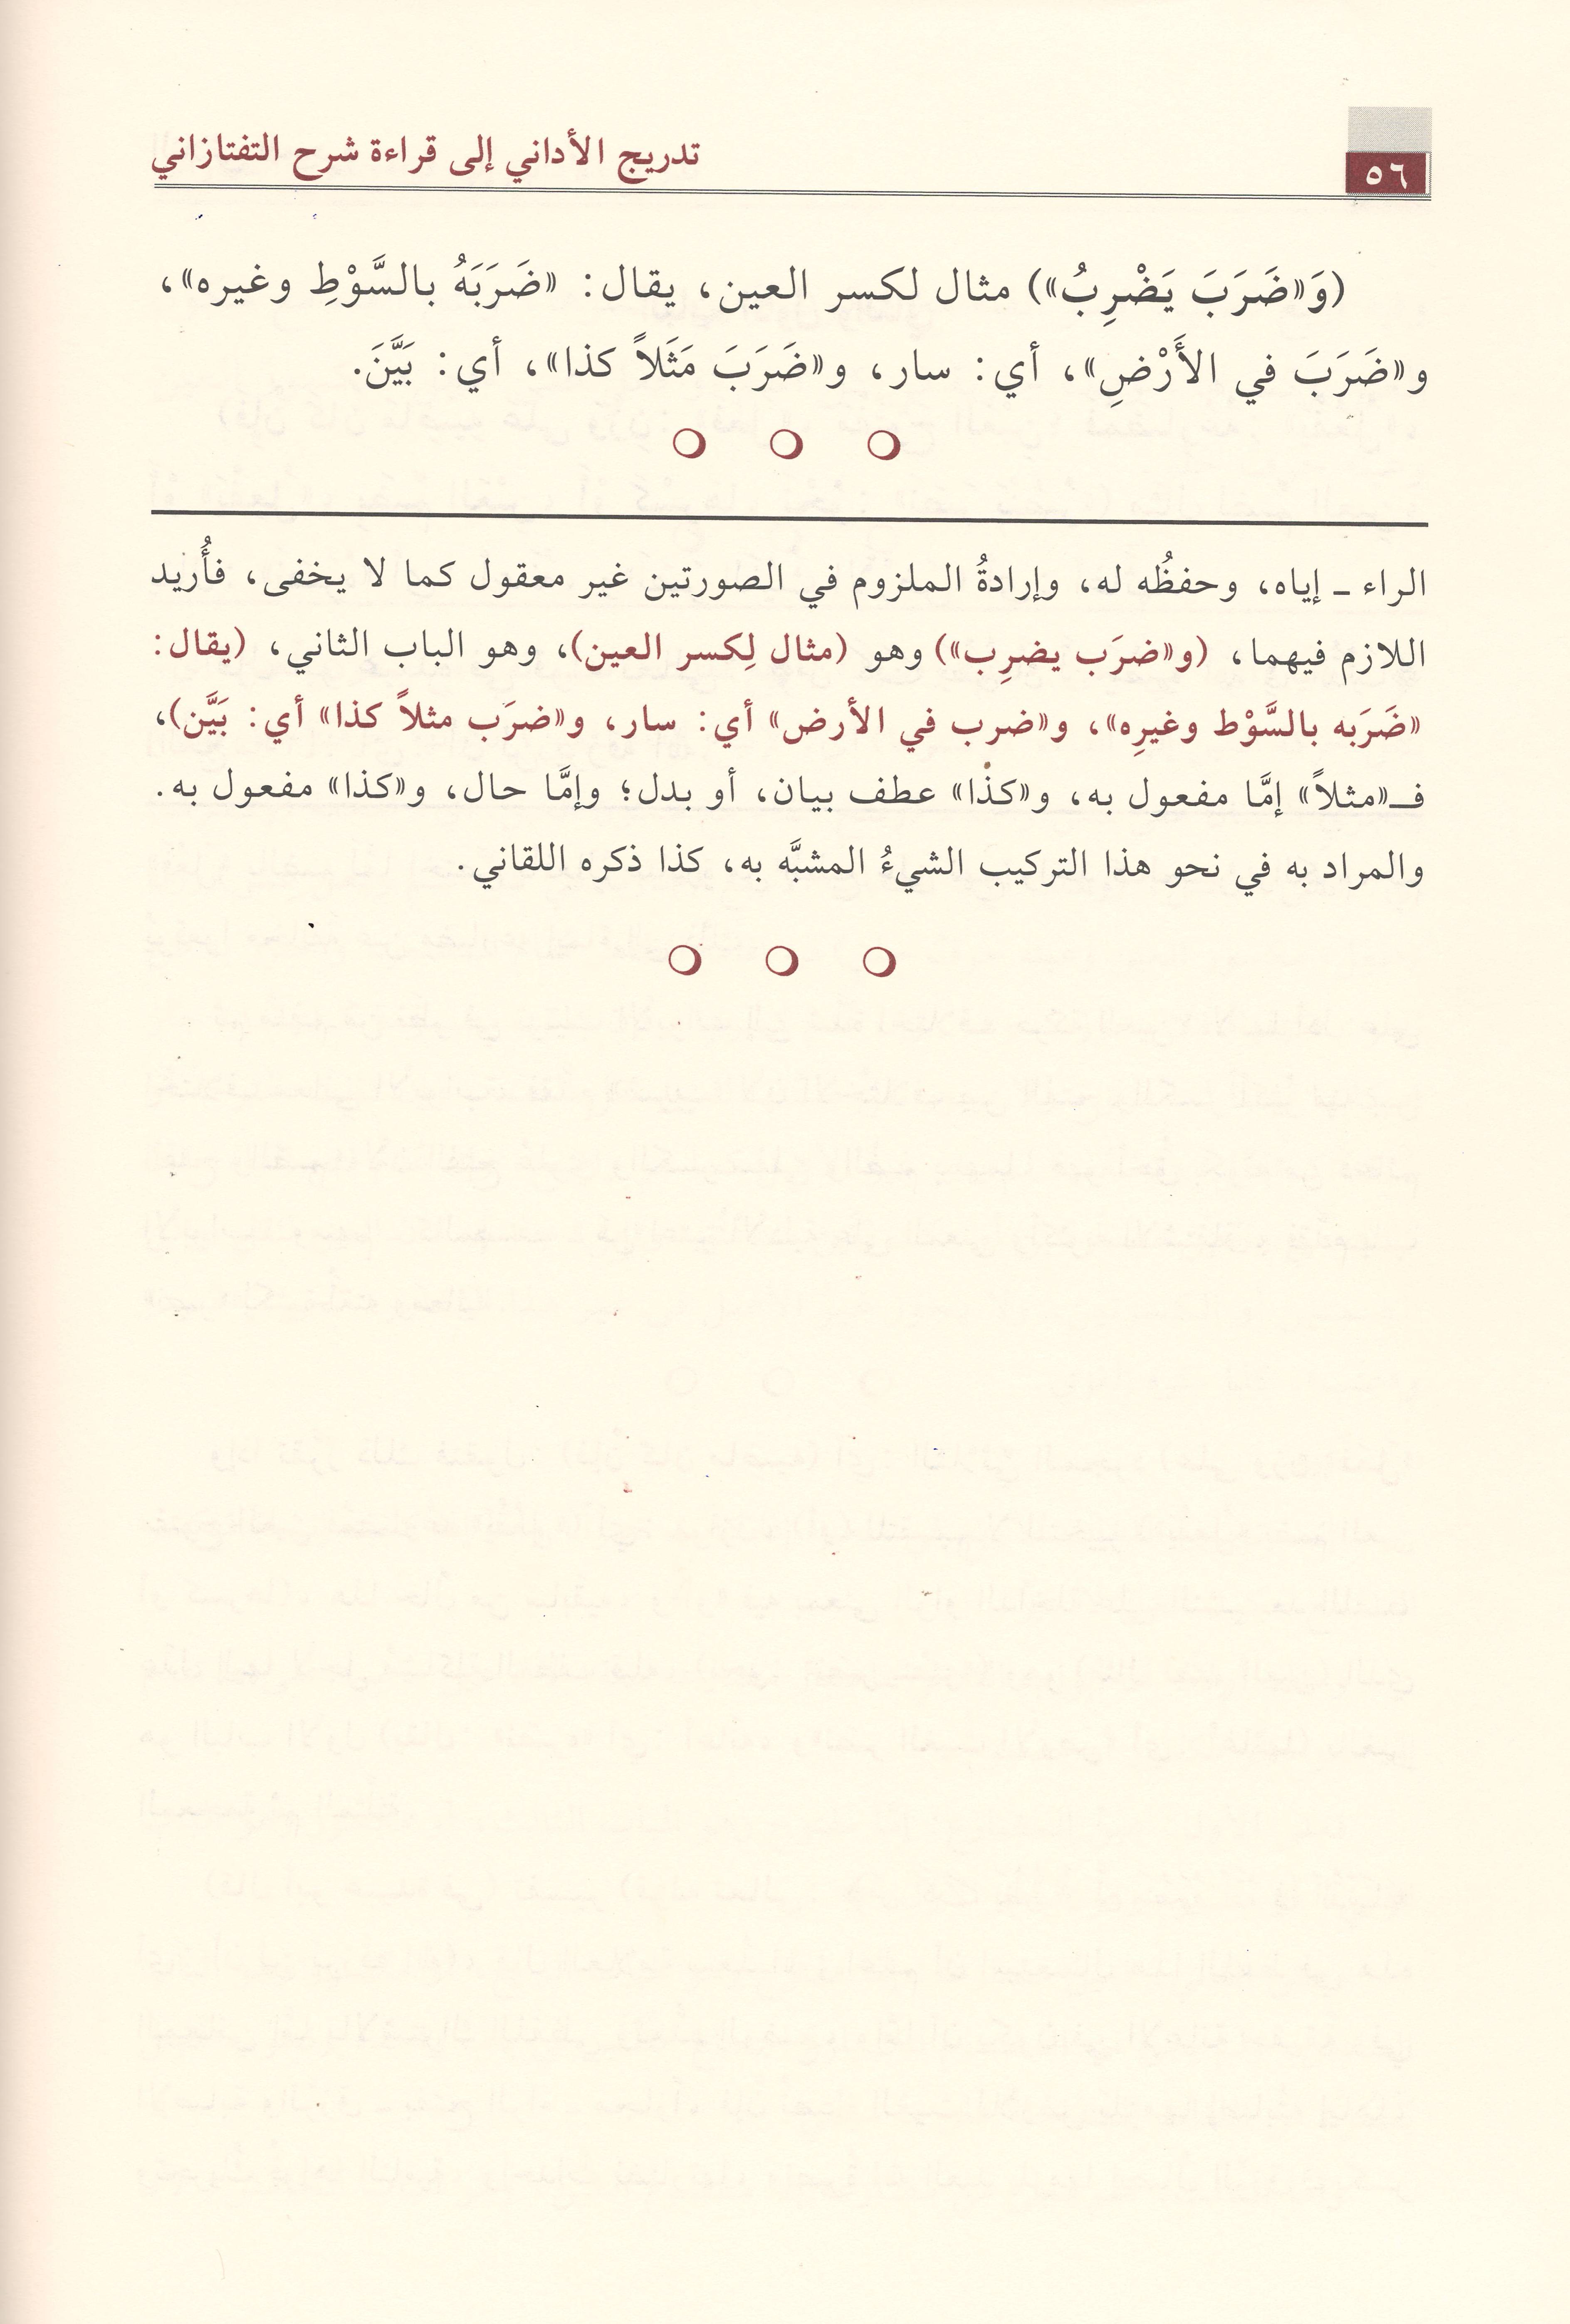 ٥٦
تدريج الأداني إلى قراءة شرح التفتازاني
(وَ«ضَرَبَ يَضْرِبُ») مثال لكسر العين، يقال: «ضَرَبَهُ بالسَّوْطِ وغيره»،
و«ضَرَبَ في الأَرْضِ»، أي: سار، و«ضَرَبَ مَثَلاً كذا»، أي: بَيَّنَ.
الراء ـ إياه، وحفظُه له، وإرادةُ الملزوم في الصورتين غير معقول كما لا يخفى، فأُريد
اللازم فيهما، (و«ضرَب يضرِب») وهو (مثال لِكسر العين)، وهو الباب الثاني، (يقال:
«ضَرَبه بالسَّوْط وغيرِه»، و«ضرب في الأرض» أي: سار، و«ضرَب مثلاً كذا» أي: بَيَّن)،
فـ«مثلاً» إمَّا مفعول به، و«كذا» عطف بيان، أو بدل؛ وإمَّا حال، و«كذا» مفعول به.
والمراد به في نحو هذا التركيب الشيءُ المشبَّه به، كذا ذكره اللقاني.